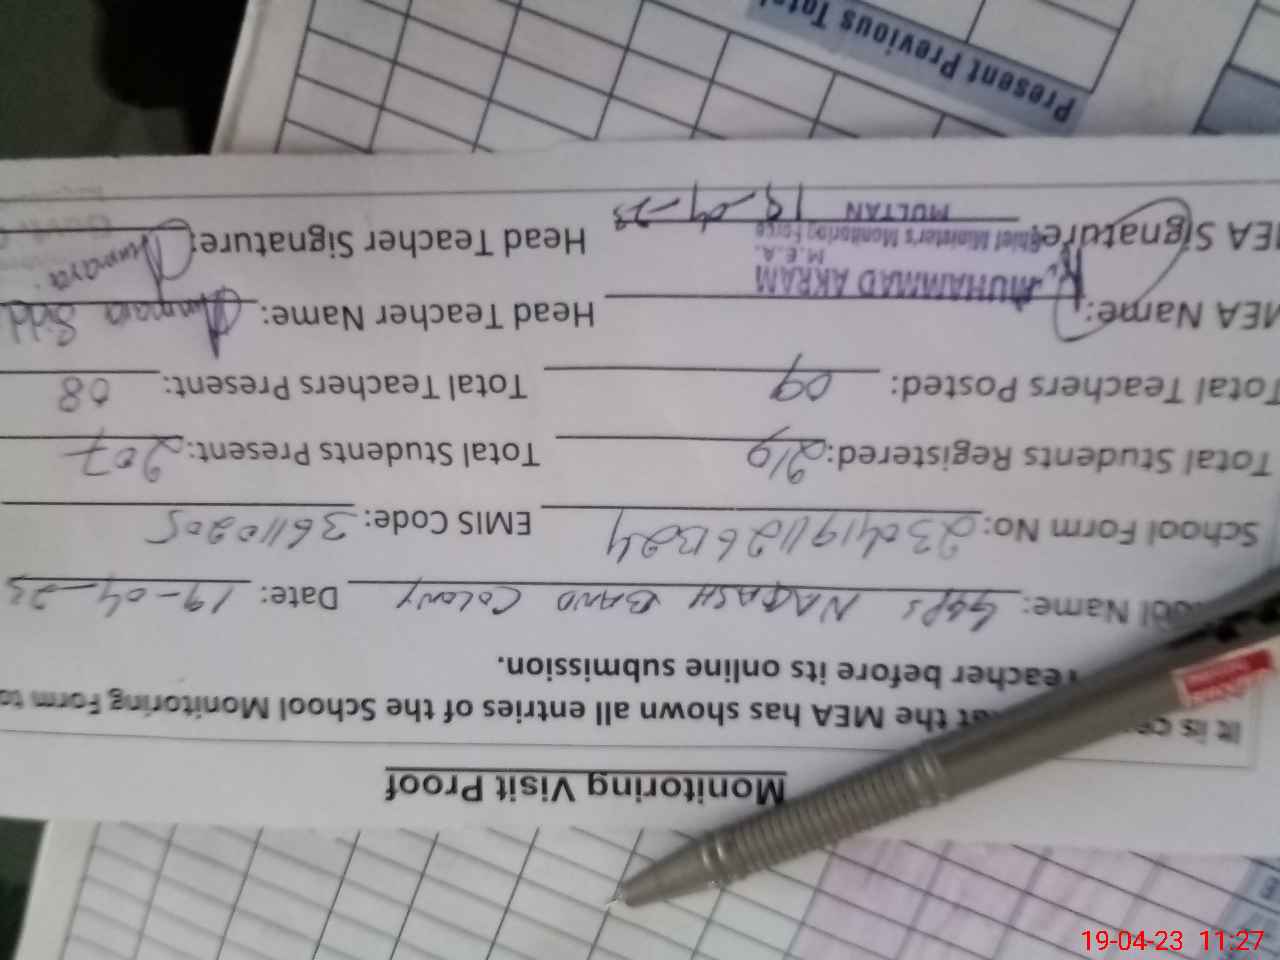 Monitoring Visit Proof
It is at the MEA has shown all entries of the School Monitoring Form to
Teacher before its online submission.
Name: GGPS NAQASH BAND COLONY Date: 19-04-23
School Form No: 23041911261324 EMIS Code: 36110205
Total Students Registered: 219 Total Students Present: 207
Total Teachers Posted: 09 Total Teachers Present: 08
MEA Name: MUHAMMAD AKRAM Head Teacher Name:
M.E.A.
Chief Minister's Monitoring Force
MEA Signature: MULTAN 19-04-23 Head Teacher Signature:
Present Previous Total
19-04-23 11:27